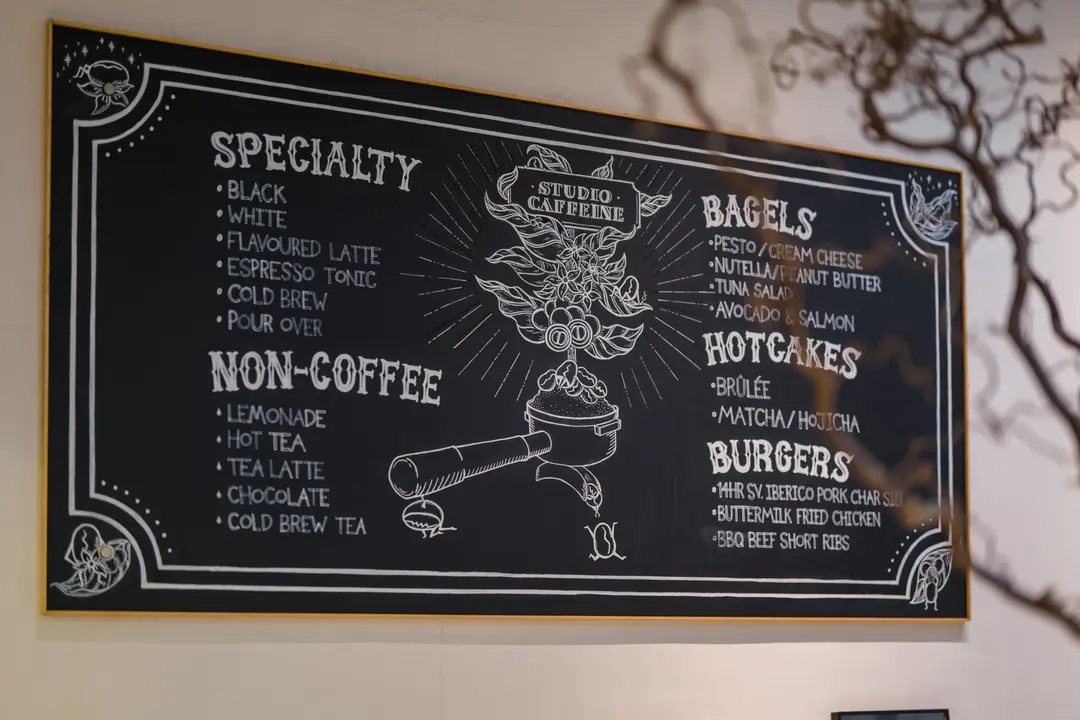 SPECIALTY
• BLACK
• WHITE
• FLAVOURED LATTE
• ESPRESSO TONIC
• COLD BREW
• POUR OVER
NON-COFFEE
• LEMONADE
• HOT TEA
• TEA LATTE
• CHOCOLATE
• COLD BREW TEA
· STUDIO ·
CAFFEINE
BAGELS
• PESTO / CREAM CHEESE
• NUTELLA/PEANUT BUTTER
• TUNA SALAD
• AVOCADO & SALMON
HOTCAKES
• BRÛLÉE
• MATCHA/HOJICHA
BURGERS
• 14HR SV. IBERICO PORK CHAR SIU
• BUTTERMILK FRIED CHICKEN
• BBQ BEEF SHORT RIBS